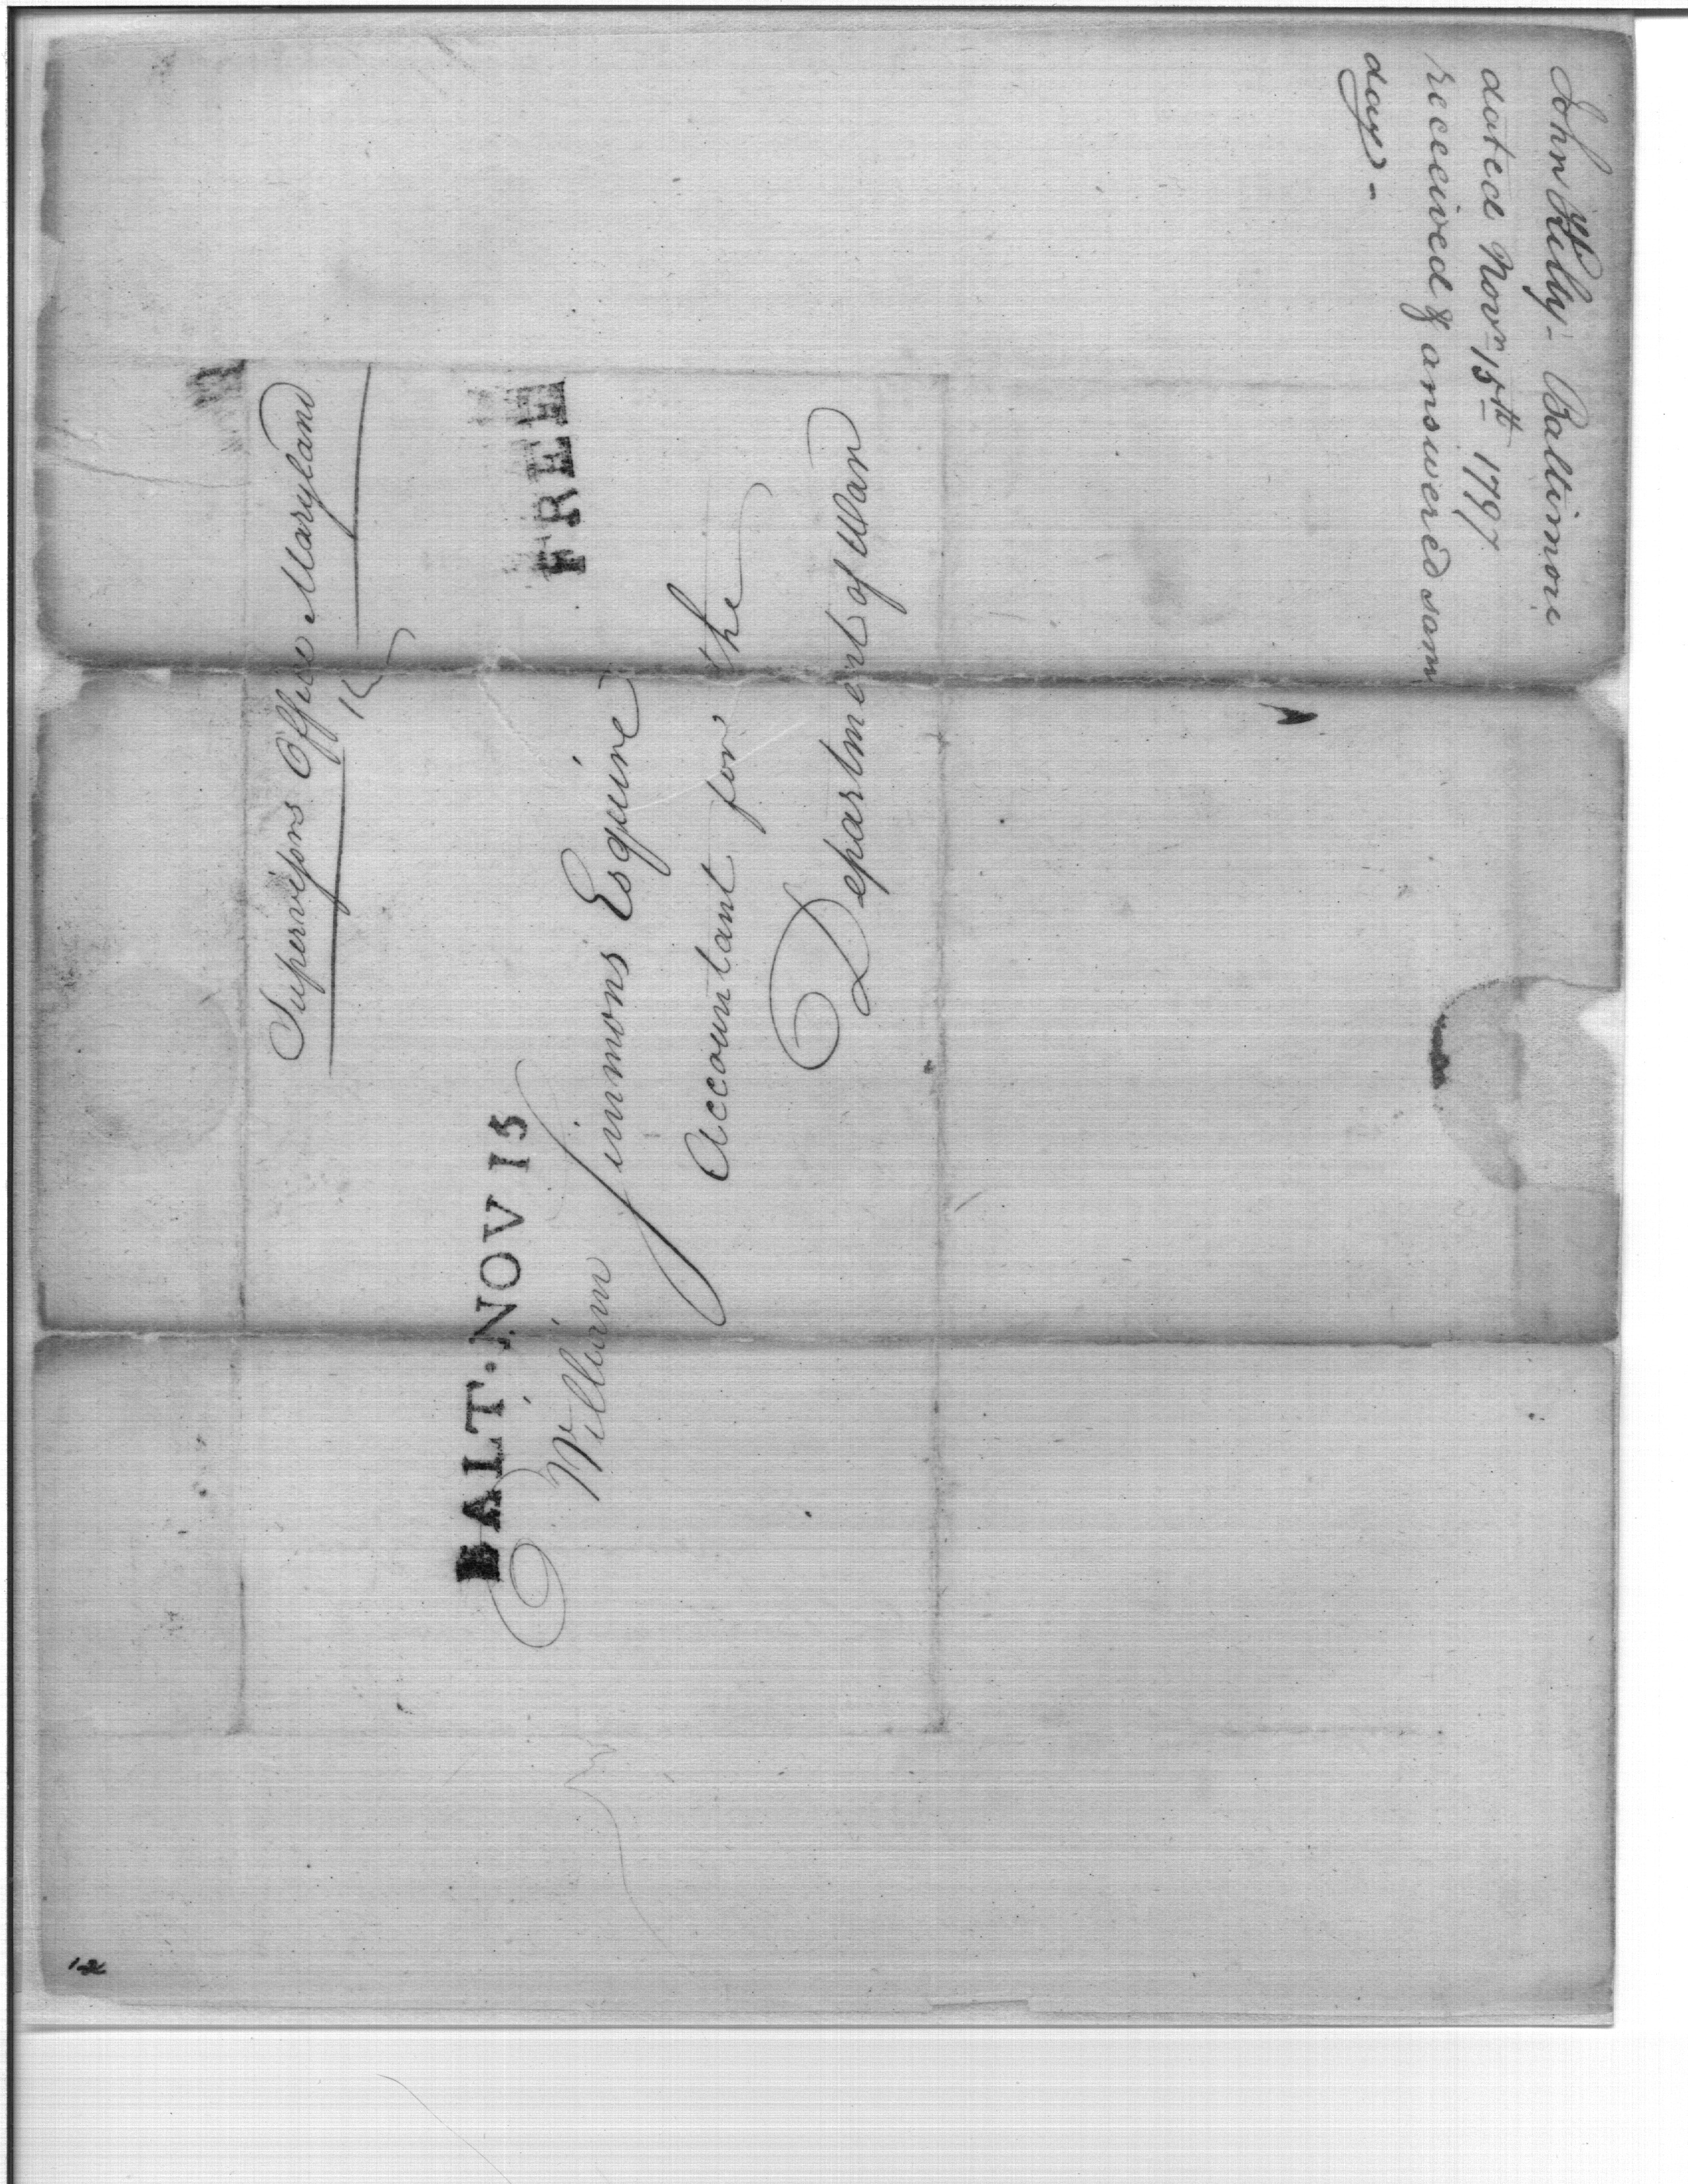 John Kilty - Baltimore
dated Novr 15th 1797
received & answered same
day -
Supervisors Office Maryland
FREE
BALT. NOV 15
William Simmons Esquire
Accountant for the
Department of War